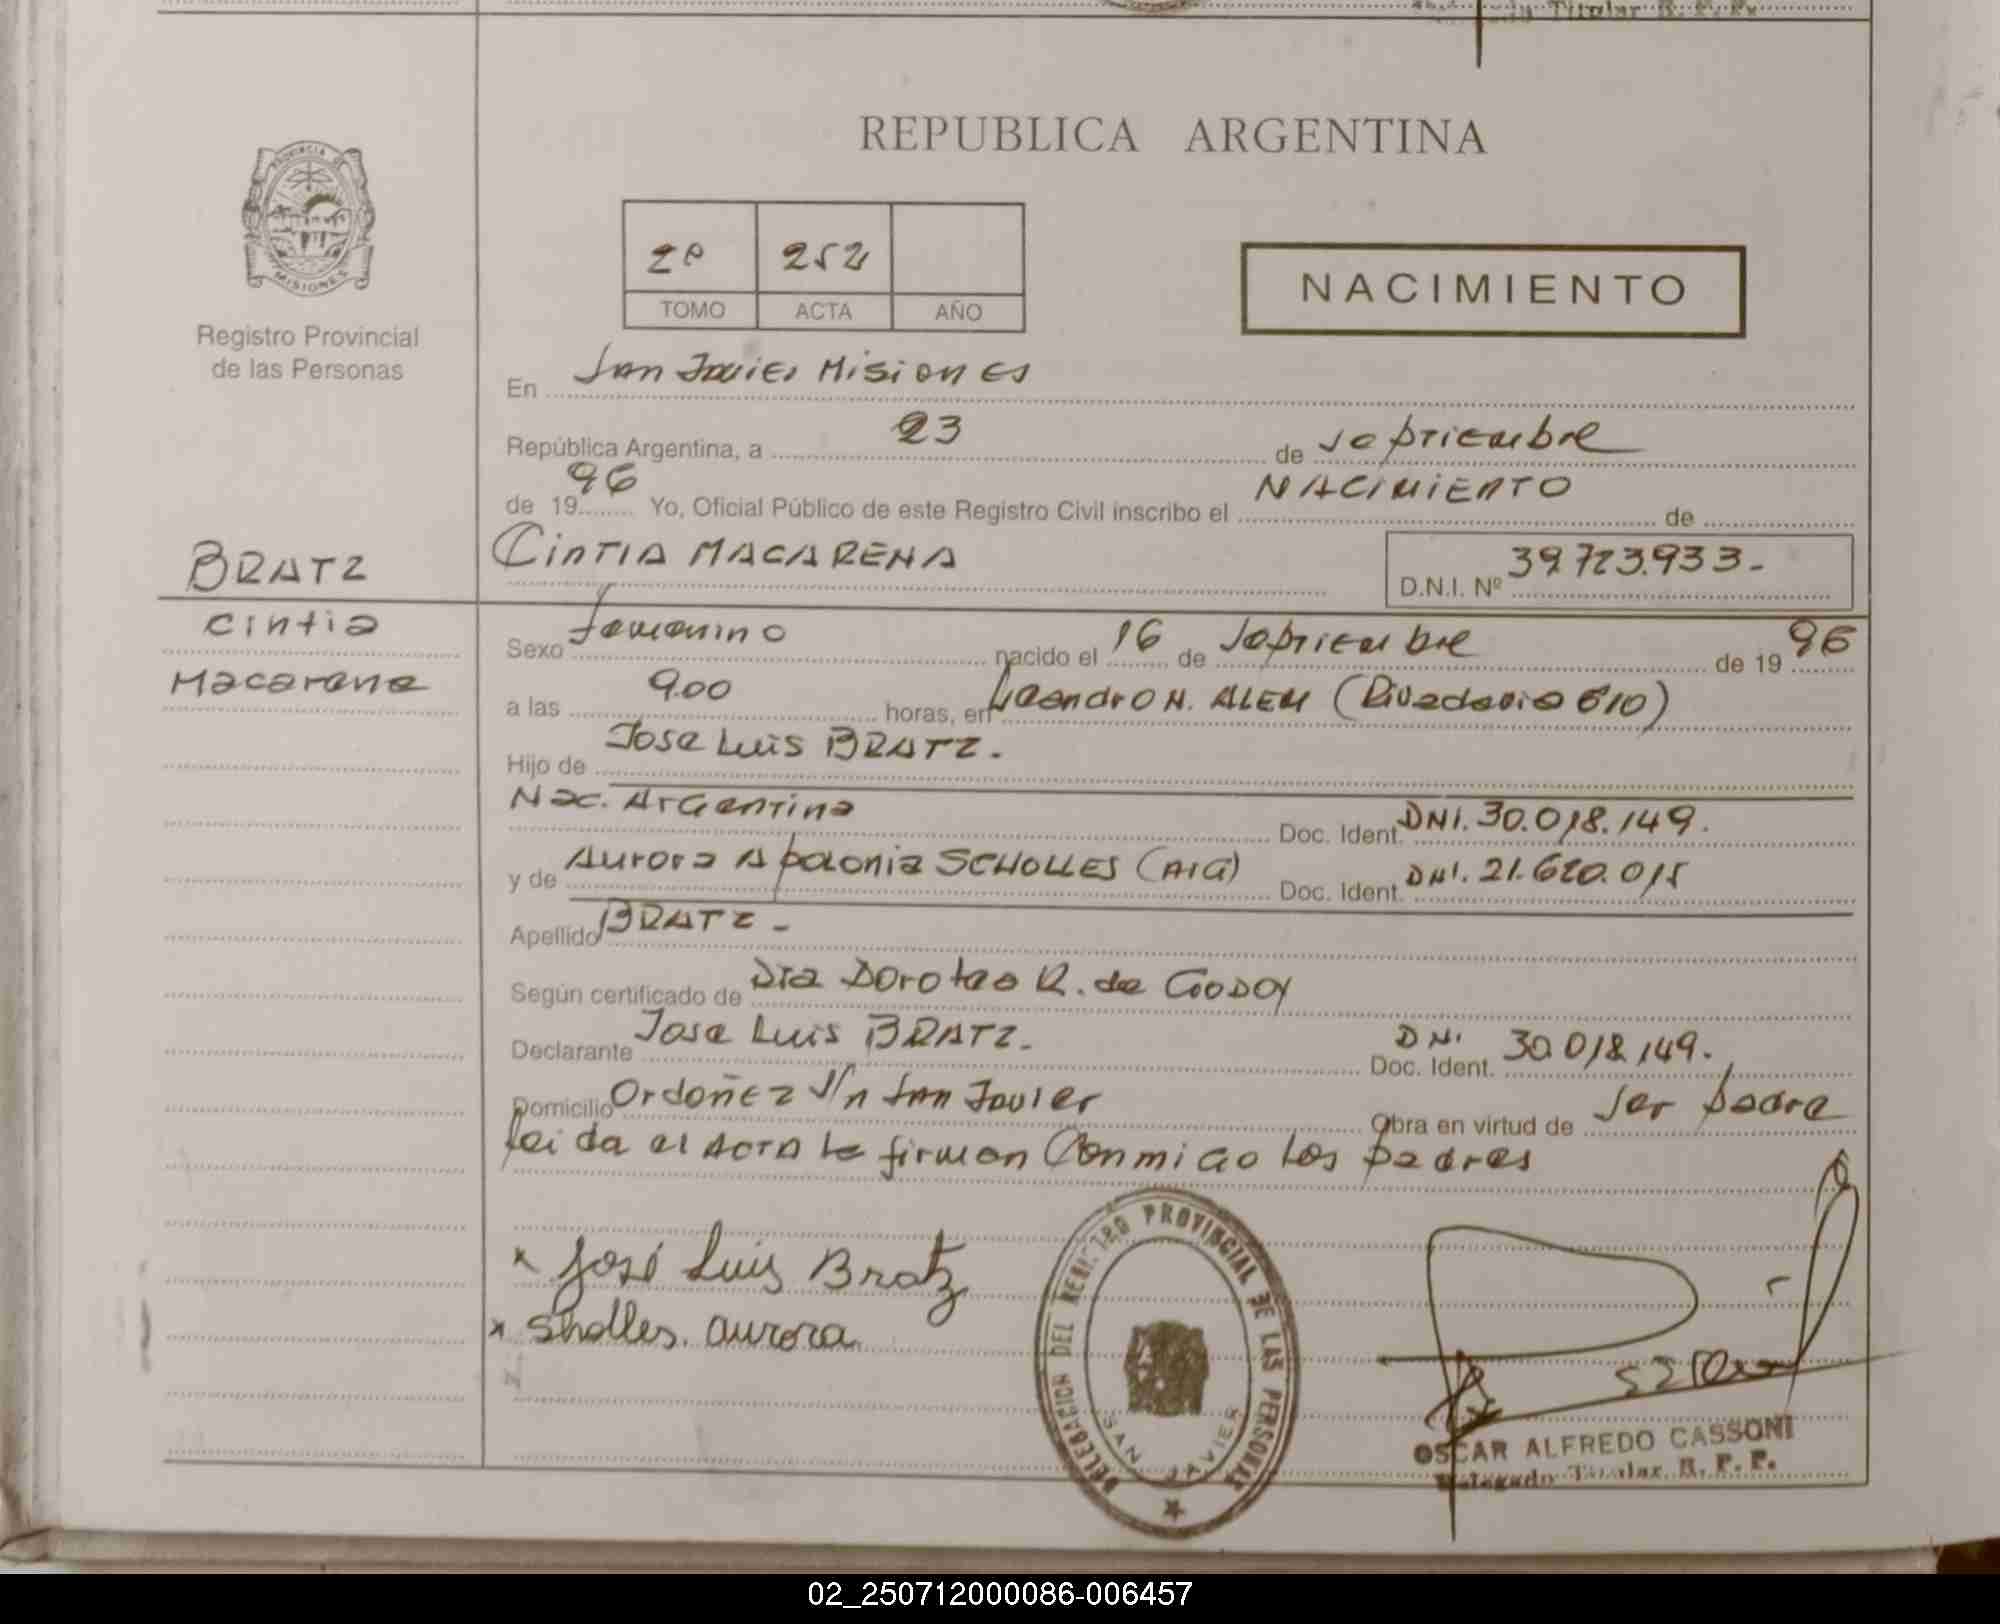 REPUBLICA ARGENTINA
PROVINCIA DE
MISIONES
Registro Provincial
de las Personas
2º 252
TOMO ACTA AÑO
NACIMIENTO
En San Javier Misiones
República Argentina, a 23 de Septiembre
de 1996 Yo, Oficial Público de este Registro Civil inscribo el NACIMIENTO de
BRATZ
Cintia
Macarena
CINTIA MACARENA D.N.I. Nº 39.723.933-
Sexo femenino nacido el 16 de Septiembre de 1996
a las 9.00 horas, en Leandro N. ALEM (Rivadavia 610)
Hijo de Jose Luis BRATZ.
Nac. Argentina Doc. Ident. DNI. 30.018.149.
y de Aurora Apolonia SCHOLLES (ARG) Doc. Ident. DNI. 21.620.015
Apellido BRATZ -
Según certificado de Dra Dorotea R. de GODOY
Declarante Jose Luis BRATZ. Doc. Ident. DNI. 30.018.149.
Domicilio Ordoñez S/n San Javier Obra en virtud de Ser padre
leida el ACTA la firman Conmigo los padres
x José Luis Bratz
x Sholles. aurora
DELEGACION DEL REGISTRO PROVINCIAL DE LAS PERSONAS
SAN JAVIER
OSCAR ALFREDO CASSONI
Delegado Titular R. P. P.
02_250712000086-006457